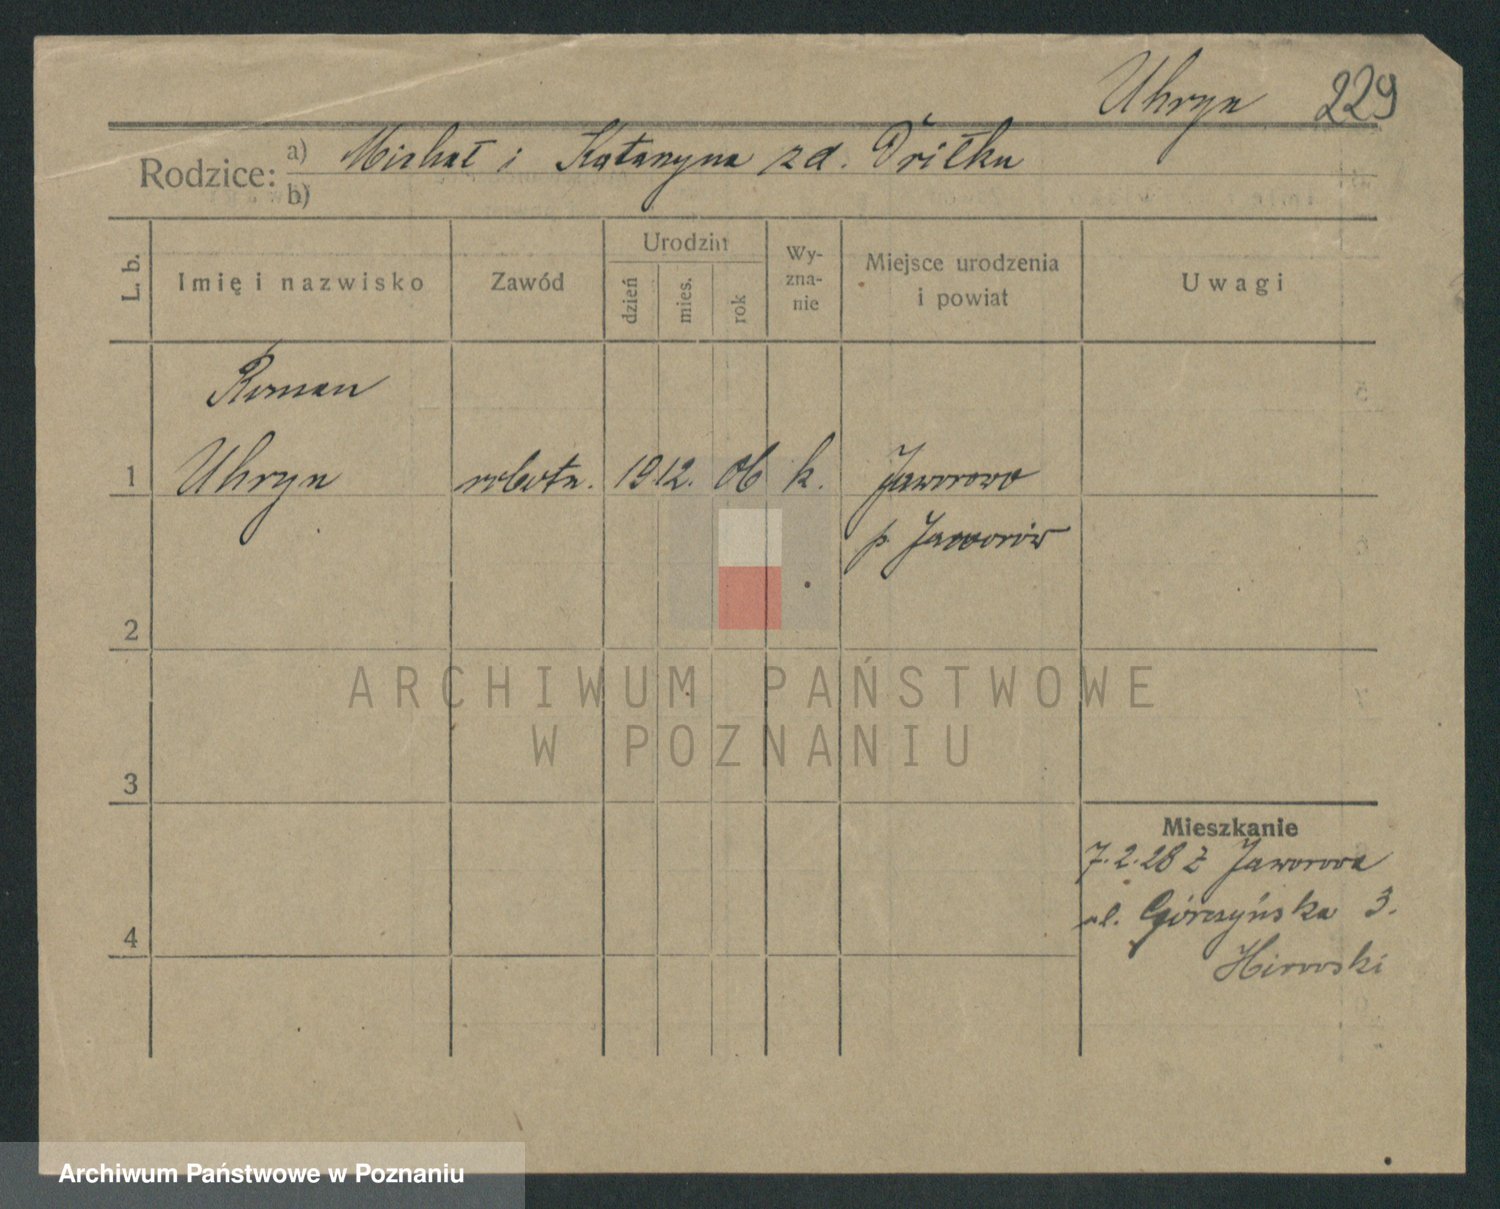 Uhryn 229
Rodzice: a) Michał i Katarzyna zd.
b)
L. b. Imię i nazwisko Zawód Urodzin dzień mies. rok Wy-zna-nie Miejsce urodzenia i powiat Uwagi
Roman
1 Uhryn robotn. 19 12. 06 k. Jaworowo
p. Jaworów
2
ARCHIWUM PAŃSTWOWE
W POZNANIU
3
Mieszkanie
7.2.28 z Jaworowa
ul. Górczyńska 3.
4
Archiwum Państwowe w Poznaniu